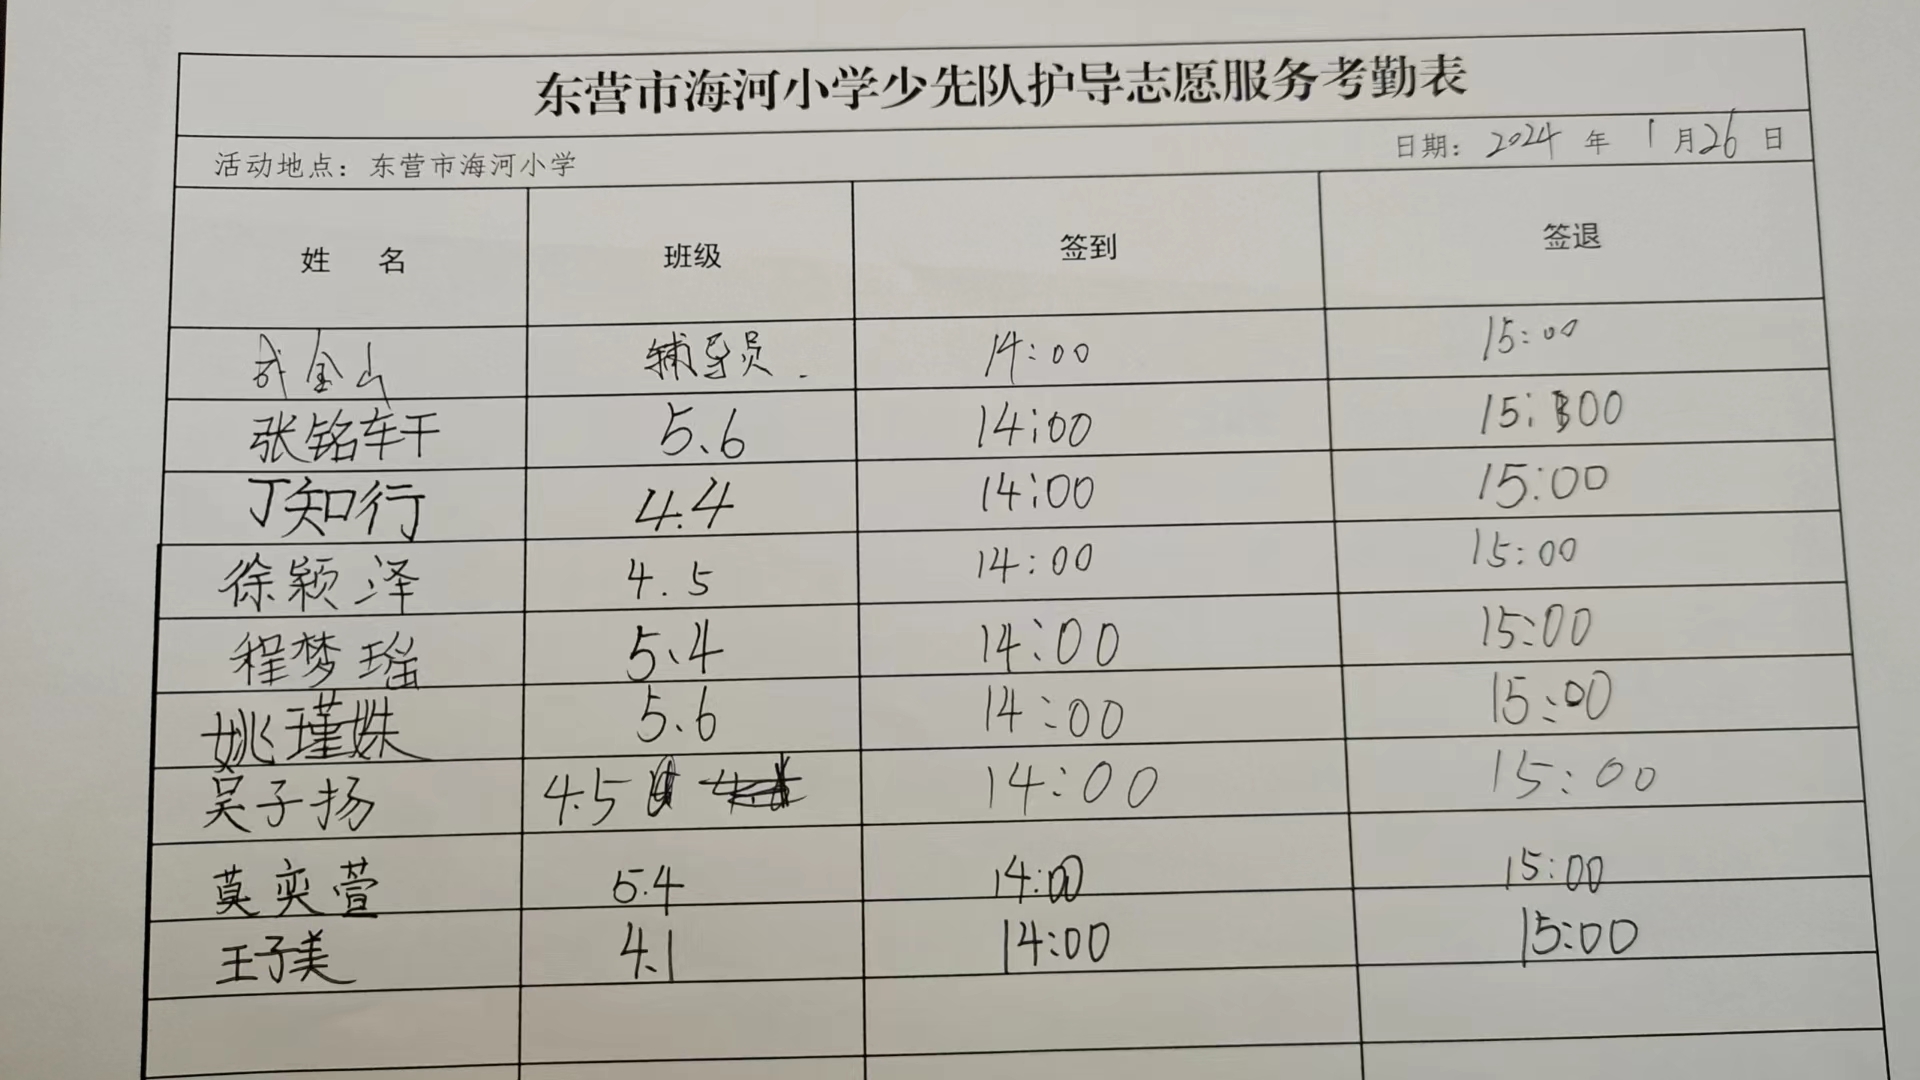 东营市海河小学少先队护导志愿服务考勤表
活动地点：东营市海河小学 日期：2024 年 1 月 26 日
姓 名 班级 签到 签退
金山 辅导员. 14:00 15:00
张铭轩 5.6 14:00 15:00
丁知行 4.4 14:00 15:00
徐颖泽 4.5 14:00 15:00
程梦瑶 5.4 14:00 15:00
姚瑾姝 5.6 14:00 15:00
吴子扬 4.5 14:00 15:00
莫奕萱 5.4 14:00 15:00
王子美 4.1 14:00 15:00